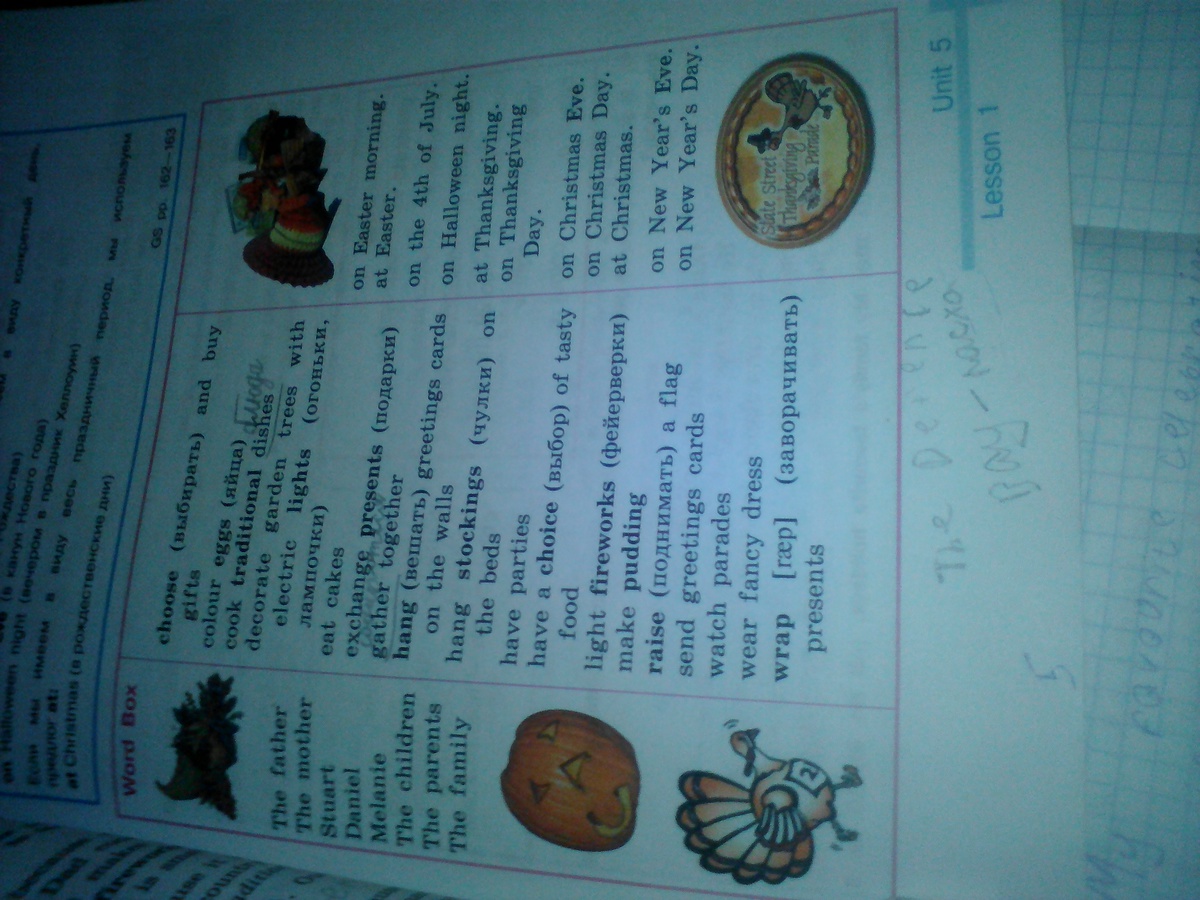 on Halloween night (вечером в праздник Хеллоуин)
Если мы имеем в виду весь праздничный период, мы используем
предлог at:
at Christmas (в рождественские дни)
GS pp. 162–163
Word Box
The father
The mother
Stuart
Daniel
Melanie
The children
The parents
The family
2
choose (выбирать) and buy
gifts
colour eggs (яйца)
cook traditional dishes
блюда
decorate garden trees with
electric lights (огоньки,
лампочки)
eat cakes
exchange presents (подарки)
gather together
hang (вешать) greetings cards
on the walls
hang stockings (чулки) on
the beds
have parties
have a choice (выбор) of tasty
food
light fireworks (фейерверки)
make pudding
raise (поднимать) a flag
send greetings cards
watch parades
wear fancy dress
wrap [ræp] (заворачивать)
presents
on Easter morning.
at Easter.
on the 4th of July.
on Halloween night.
at Thanksgiving.
on Thanksgiving
Day.
on Christmas Eve.
on Christmas Day.
at Christmas.
on New Year's Eve.
on New Year's Day.
State Street
Thanksgiving
Parade
Unit 5
Lesson 1
The
Day –
5